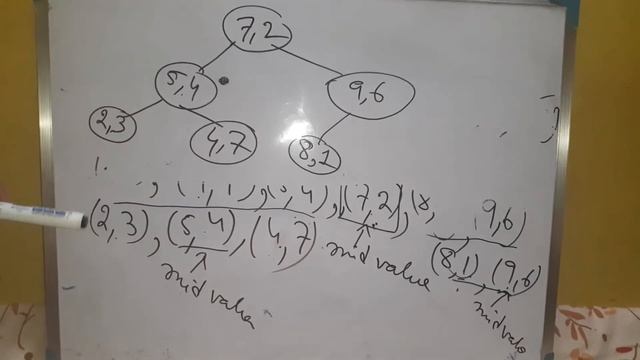 7,2
5,4
9,6
2,3
4,7
8,1
1.
, 4), (7,2), (8, 9,6)
(2,3), (5,4), (4,7) mid value (8,1) (9,6)
mid value